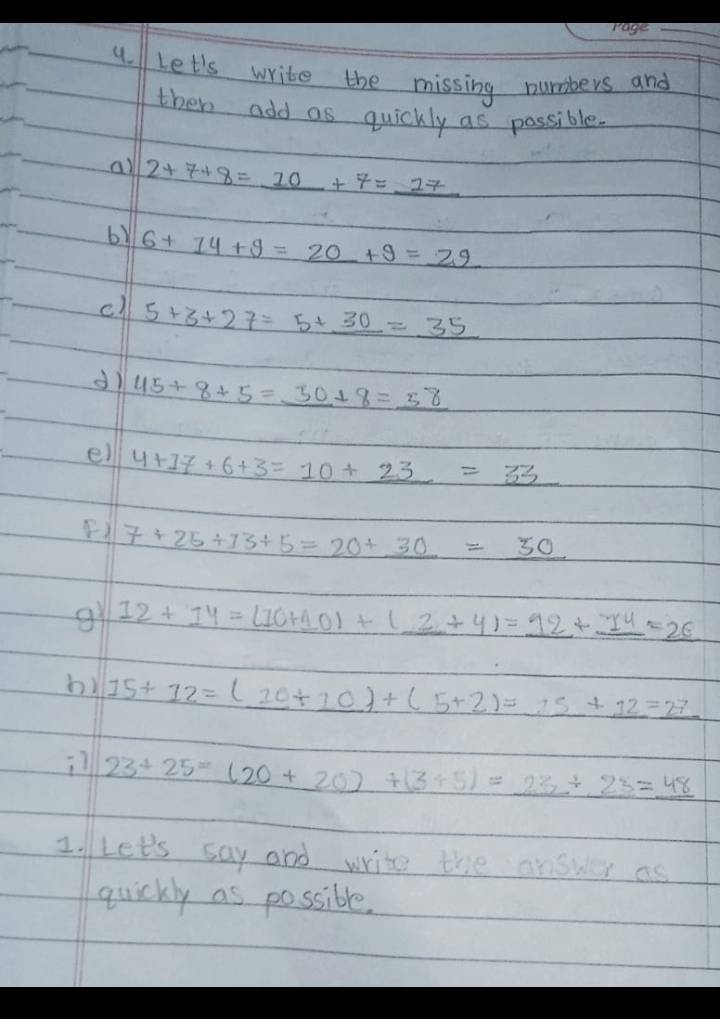 Page
4. Let's write the missing numbers and
then add as quickly as possible.
a) 2+7+8= 10 + 7= 17
b) 6+ 14+9 = 20 +9 = 29
c) 5+3+27= 5+ 30 = 35
d) 45+8+5 = 50+8= 58
e) 4+17+6+3= 10 + 23 = 33
f) 7+25+13+5= 20+ 30 = 50
g) 12+ 14 = (10+10) + ( 2 +4)= 12 + 14 = 26
h) 15+ 12= ( 10+10)+( 5+2)= 15 + 12=27
i) 23+ 25= (20 + 20) +(3+5) = 23 + 25=48
1. Let's say and write the answer as
quickly as possible.